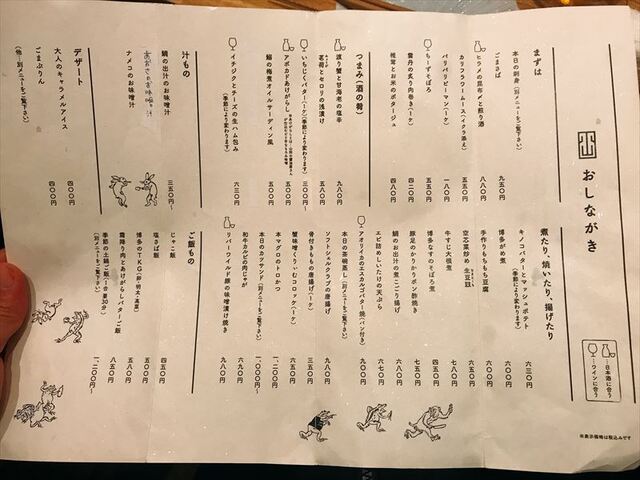 おしながき
…日本酒に合う
…ワインに合う
※表示価格は税込みです
まずは
本日の刺身(別メニューをご覧下さい)
ごまさば 九五〇円
ヒラメの昆布〆と煎り酒 八八〇円
カリフラワームース(イクラ添え) 五五〇円
パリパリピーマン(一ケ) 一八〇円
ちーずそぼろ 五五〇円
雲丹の炙り肉巻き(一ケ) 四二〇円
椎茸とお米のポタージュ 四八〇円
つまみ(酒の肴)
渡り蟹と甘海老の塩辛 九八〇円
茗荷とセロリの浅漬け 五五〇円
いちじくバター(一ケ)(季節により変わります) 三〇〇円〜
アボカドあけがらし 五五〇円
鰯の梅煮オイルサーディン風 五〇〇円
イチジクとチーズの生ハム包み(季節により変わります) 六三〇円
汁もの
鯛の出汁のお味噌汁 三五〇円〜
あおさのお味噌汁
ナメコのお味噌汁
デザート
大人のキャラメルアイス 四〇〇円
ごまぷりん 四〇〇円
(他…別メニューをご覧下さい)
煮たり、焼いたり、揚げたり
キノコバターとマッシュポテト(季節により変わります) 六三〇円
博多がめ煮 六〇〇円
手作りもちもち豆腐 六〇〇円
空芯菜炒め 生豆鼓 六五〇円
牛すじ大根煮 七八〇円
博多なすのそぼろ煮 四五〇円
豚足のかりかりポン酢焼き 七五〇円
鯛のお出汁の煮こごり揚げ 六八〇円
エビ詰めしいたけの天ぷら 六七〇円
アオリイカのエスカルゴバター焼(パン付き) 九〇〇円
本日の茶碗蒸し(別メニューをご覧下さい)
ソフトシェルクラブの唐揚げ 九八〇円
骨付きももの唐揚げ(一ケ) 三五〇円
蟹味噌くりぃむコロッケ(一ケ) 六五〇円
本マグロのトロカツ 一、二〇〇円
本日のカツサンド(別メニューをご覧下さい) 一、〇〇〇円〜
和牛カルビの肉じゃが 六九〇円
リバーワイルド豚の味噌漬け焼き 九八〇円
ご飯もの
じゃこ飯 四五〇円
塩さば飯 五〇〇円
博多のTKG(卵・明太・高菜) 五五〇円
霜降り肉とあけがらしバターご飯 八五〇円
季節の土鍋ご飯(一合 要30分)(別メニューをご覧下さい) 一、二〇〇円〜